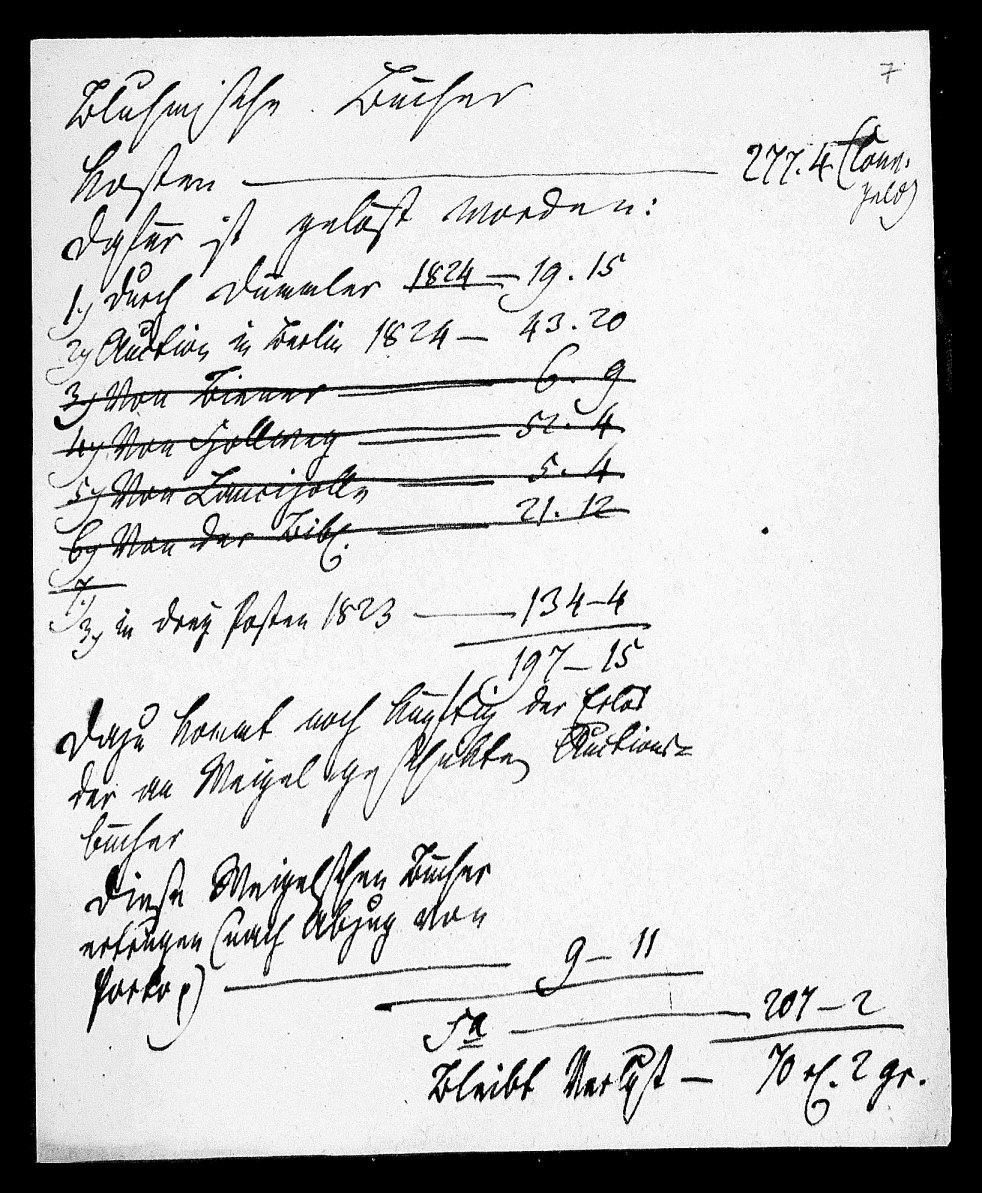 7
Bluhmische Bücher
kosten — 277. 4. (Conv. Geld)
Dafür ist gelöst worden:
1) durch Dümmler 1824 — 19. 15
2) Auction in Berlin 1824 — 43. 20
3) Von Biener — 6. 9
4) Von Hollweg — 52. 4
5) Von Lancizolle — 5. 4
6) Von der Bibl. — 21. 12
7.)
3) in drey Posten 1823 — 134–4
197–15
Dazu kommt noch künftig der Erlös
der an Weigel geschickten Auctions=
bücher
Diese Weigelschen Bücher
ertrugen (nach Abzug von
Porto) — 9–11
Sa — 207–2
Bleibt Verlust — 70 rl. 2 gr.